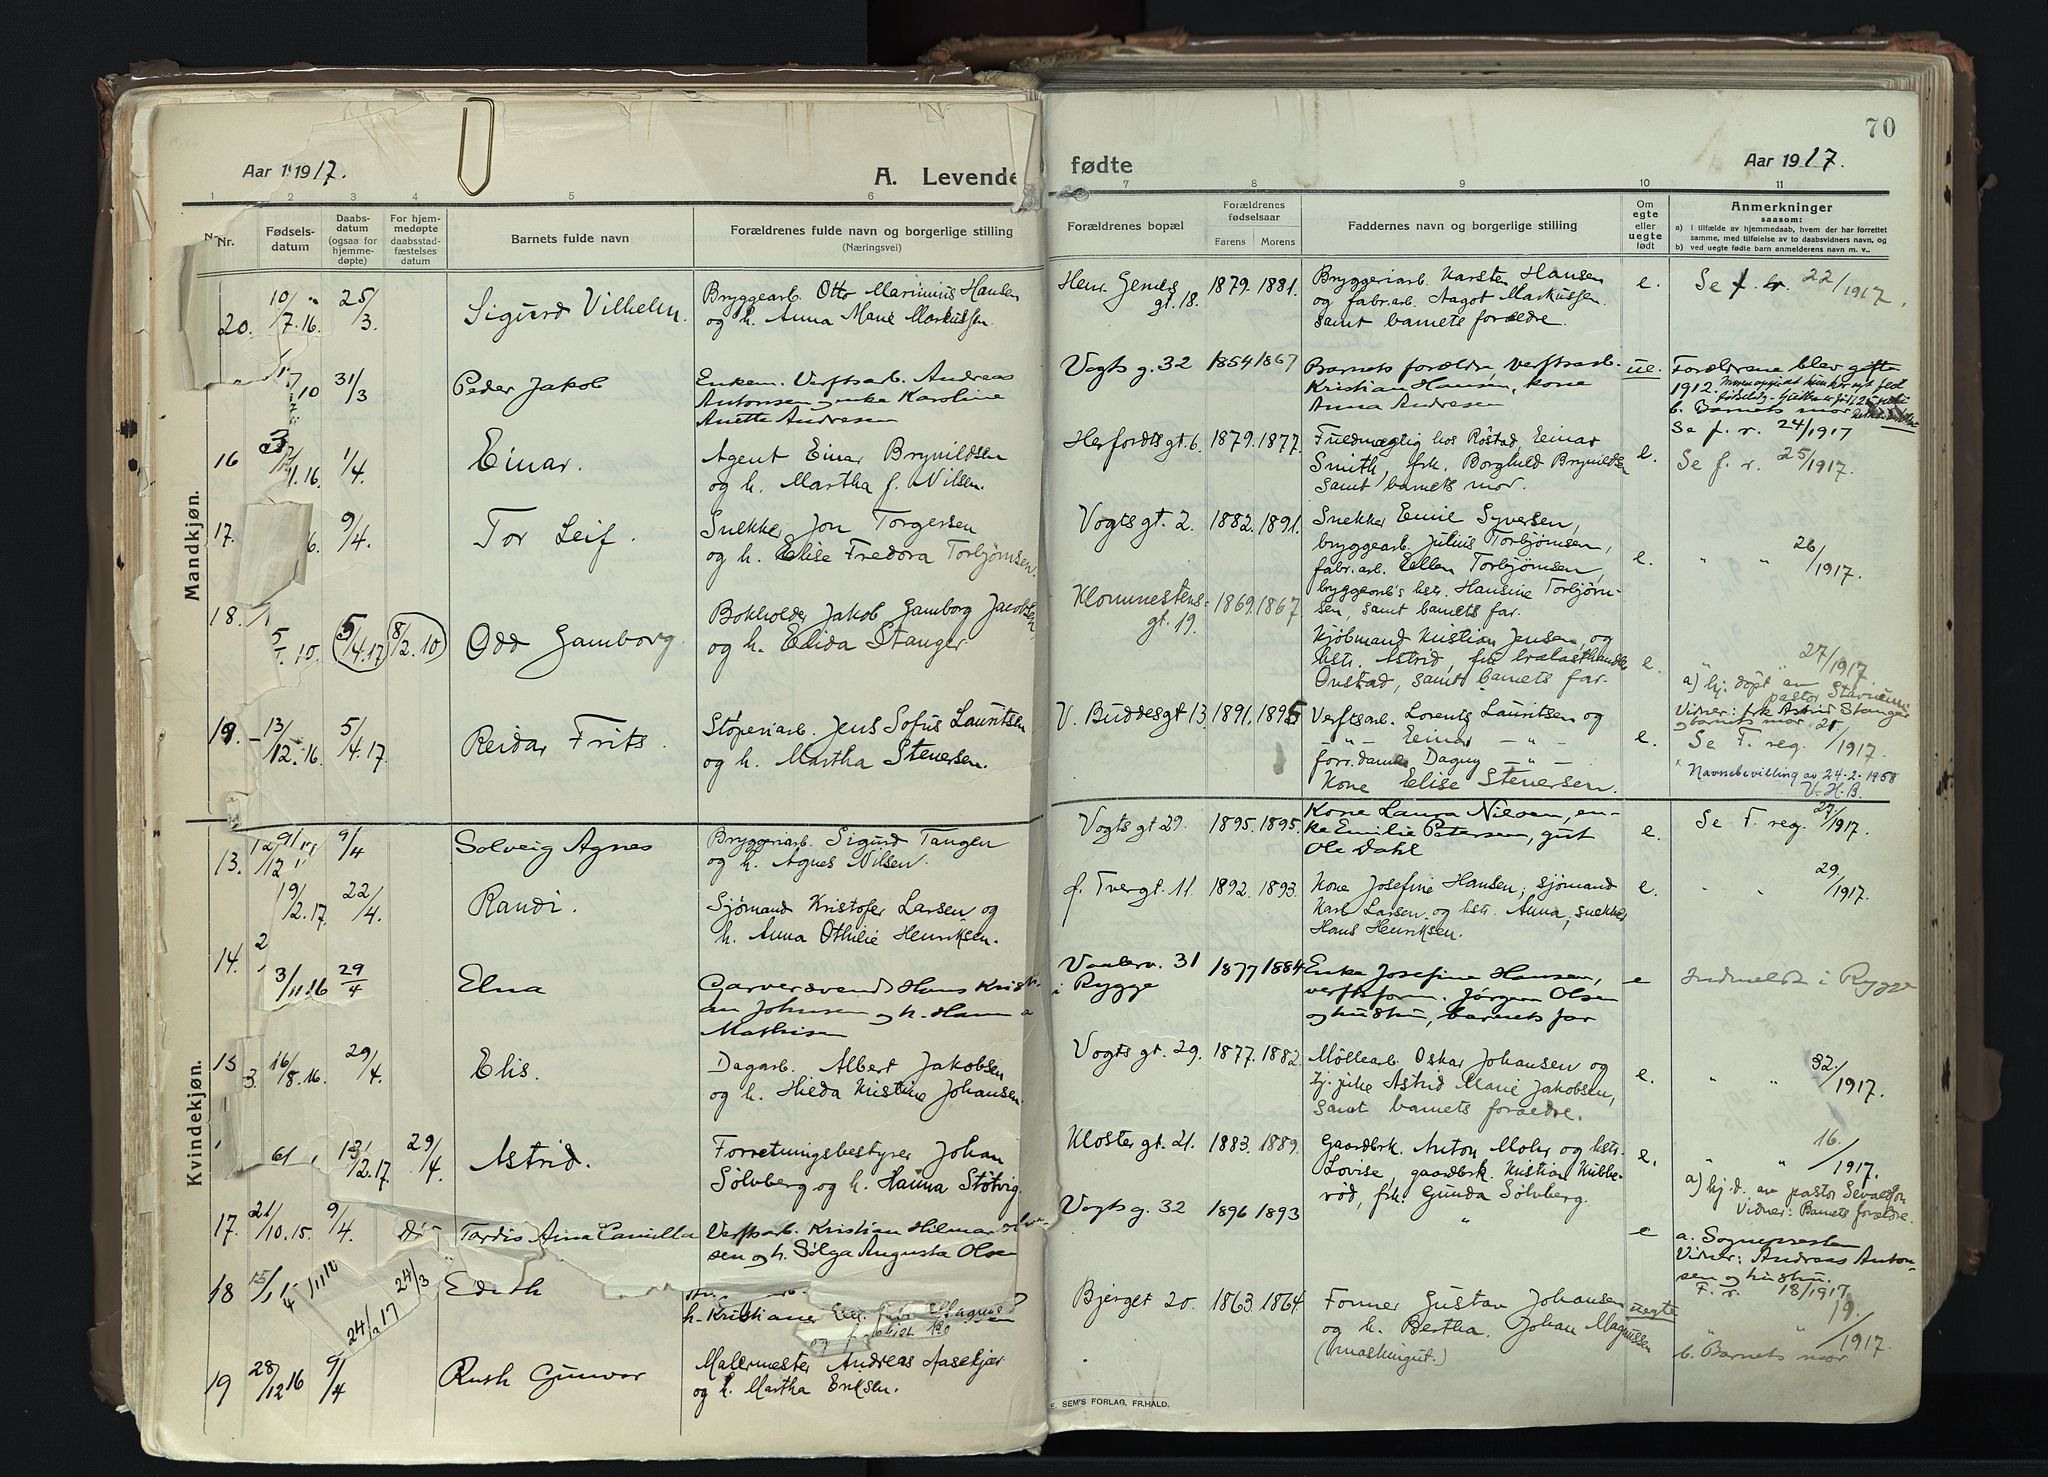 Aar 1917.
A. Levende
1 2 3 4 5 6
Nr.
Fødsels-
datum
Daabs-
datum
(ogsaa for
hjemme-
døpte)
For hjem-
medøpte
daabsstad-
fæstelses
datum
Barnets fulde navn
Forældrenes fulde navn og borgerlige stilling
(Næringsvei)
Mandkjøn.
20. 10/7.16. 25/3. Sigurd Vilhelm.
Bryggearb. Otto Marinius Hansen
og h. Anna Marie Markussen.
10 31/3 Peder Jakob
Enkem. Verftsarb. Andreas
Antonsen og enke Karoline
Anette Andresen
16 1/4. Einar.
Agent Einar Brynildsen
og h. Martha f. Nilsen.
17. 9/4. Tor Leif.
Snekker Jon Torgersen
og h. Elise Fredora Torbjørnsen.
18. 5/4.17 8/2.10 Odd Gamborg.
Bokholder Jakob Gamborg Jacobsen
og h. Elida Stanger
19. 13/12.16. 5/4.17. Reidar Frits.
Støperiarb. Jens Sofus Lauritsen
og h. Martha Stenersen.
Kvindekjøn.
13. 9/4 Solveig Agnes
Bryggeriarb. Sigurd Tangen
og h. Agnes Nilsen.
19/2.17. 22/4. Randi.
Sjømand Kristofer Larsen og
h. Anna Othilie Henriksen.
14. 3/11.16 29/4 Elna
Garversvend Hans Kristi-
an Johnsen og h. Hanna
Mathisen
15 16/8.16. 29/4. Elis.
Dagarb. Albert Jakobsen
og h. Hilda Kristine Johansen.
13/12.17 29/4. Astrid.
Forretningsbestyrer Johan
Sølvberg og h. Hanna Støtvig.
17. 21/10.15. 9/4. Tordis Aina Camilla
Verftsarb. Kristian Hilmar
sen og h. Sølga Augusta Olsen
18 24/3 24/2 17 Edith
h. Kristiane
19 28/12 16 9/4 Ruth Gunvor
Malermester Andreas Aasekjær
og h. Martha Eriksen.
70
fødte
Aar 1917.
7 8 9 10 11
Forældrenes bopæl
Forældrenes
fødselsaar
Farens Morens
Faddernes navn og borgerlige stilling
Om
egte
eller
uegte
født
Anmerkninger
saasom:
a) i tilfælde av hjemmedaab, hvem der har forrettet
samme, med tilføielse av to daabsvidners navn, og
b) ved uegte fødte barn anmelderens navn m. v..
Henr. Gerners
gt. 18. 1879. 1881.
Bryggeriarb. Karsten Hansen
og fabr.arb. Aagot Markussen.
samt barnets forældre.
e. Se f. r. 22/1917.
Vogts g. 32 1854 1867
Barnets forældre, verftsarb.
Kristian Hansen, kone
Anna Andresen
ue. Forældrene blev gifte
1912.
b. Barnets mor
Se f. r. 24/1917
Herfordts gt. 6. 1879. 1877.
Fuldmægtig hos Røstad Einar
Smith, frk. Borghild Brynildsen
samt barnets mor.
e. Se f. r. 25/1917.
Vogts gt. 2. 1882. 1891.
Snekker Emil Syversen,
bryggearb. Julius Torbjørnsen,
fabr.arb. Ellen Torbjørnsen,
bryggearb's hstr. Hansine Torbjørn-
sen, samt barnets far.
e. " " 26/1917.
Klommestens-
gt. 19. 1869. 1867
Kjøbmand Kristian Jensen og
hstr. Astrid, fru trælasthandler
Onstad, samt barnets far.
e. " " 27/1917.
a) hj. døpt av
pastor Stavnum
Vidner: frk Astrid Stanger
og barnets mor.
V. Buddesgt 13. 1891. 1895
Verftsarb. Lorents Lauritsen og
-"- Einar -"-
forr.dame Dagny -"-
Kone Elise Stenersen.
e. Se F. reg. 21/1917.
x Navnebevilling av 24-2-1958
V.H.B.
Vogts gt 29. 1895. 1895.
Kone Laura Nilsen, en-
ke Emilie Petersen, gut
Ole Dahl
e. Se F. reg. 27/1917.
f. Tvergt. 11. 1892. 1893.
Kone Josefine Hansen, sjømand
Karl Larsen og hstr. Anna, snekker
Hans Henriksen.
e. " " 29/1917.
Vaalerv. 31
i Rygge 1877 1884
Enke Josefine Hansen,
verftsform. Jørgen Olsen
og hustru, barnets far
e Indmeldt i Rygge
Vogts gt. 29. 1877. 1882.
Møllearb. Oskar Johansen og
tj.pike Astrid Marie Jakobsen,
samt barnets forældre.
e. " " 32/1917.
Kloster gt. 21. 1883. 1889.
Gaardbrk. Anton Mohr og hstr.
Lovise, gaardbrk. Kristian Kibbe-
rød, frk. Gunda Sølvberg.
e. " " 16/1917.
a) hj.d. av pastor Sevaldson
Vidner: Barnets forældre.
Vogts g. 32 1896 1893 "
e a. Sognepresten
Vidner: Andreas Anton-
sen og hustru.
F. r. 18/1917
Bjerget 20. 1863. 1864.
Former Gustav Johansen
og h. Bertha. Johan Magnussen
(maskingut.)
uegte " " 19/1917.
b. Barnets mor
E. SEM'S FORLAG, FR.HALD.